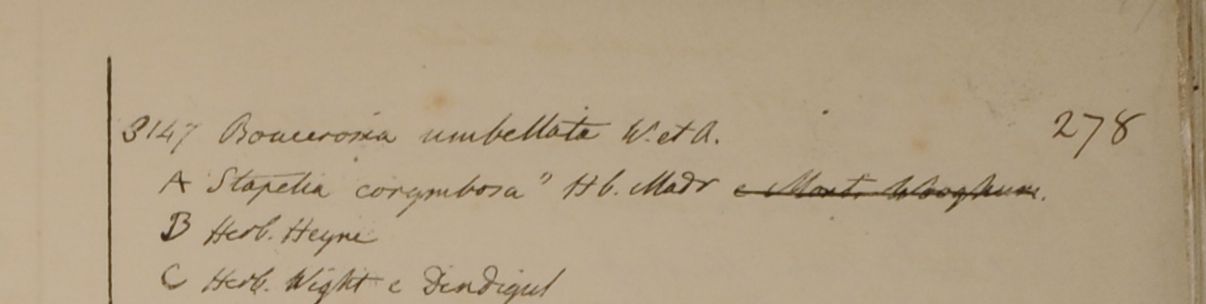 3147 Boucerosia umbellata W. et A. 278
A Stapelia corymbosa" Hb. Madr e Mont.
B Herb. Heyne
C Herb. Wight e Dindigul